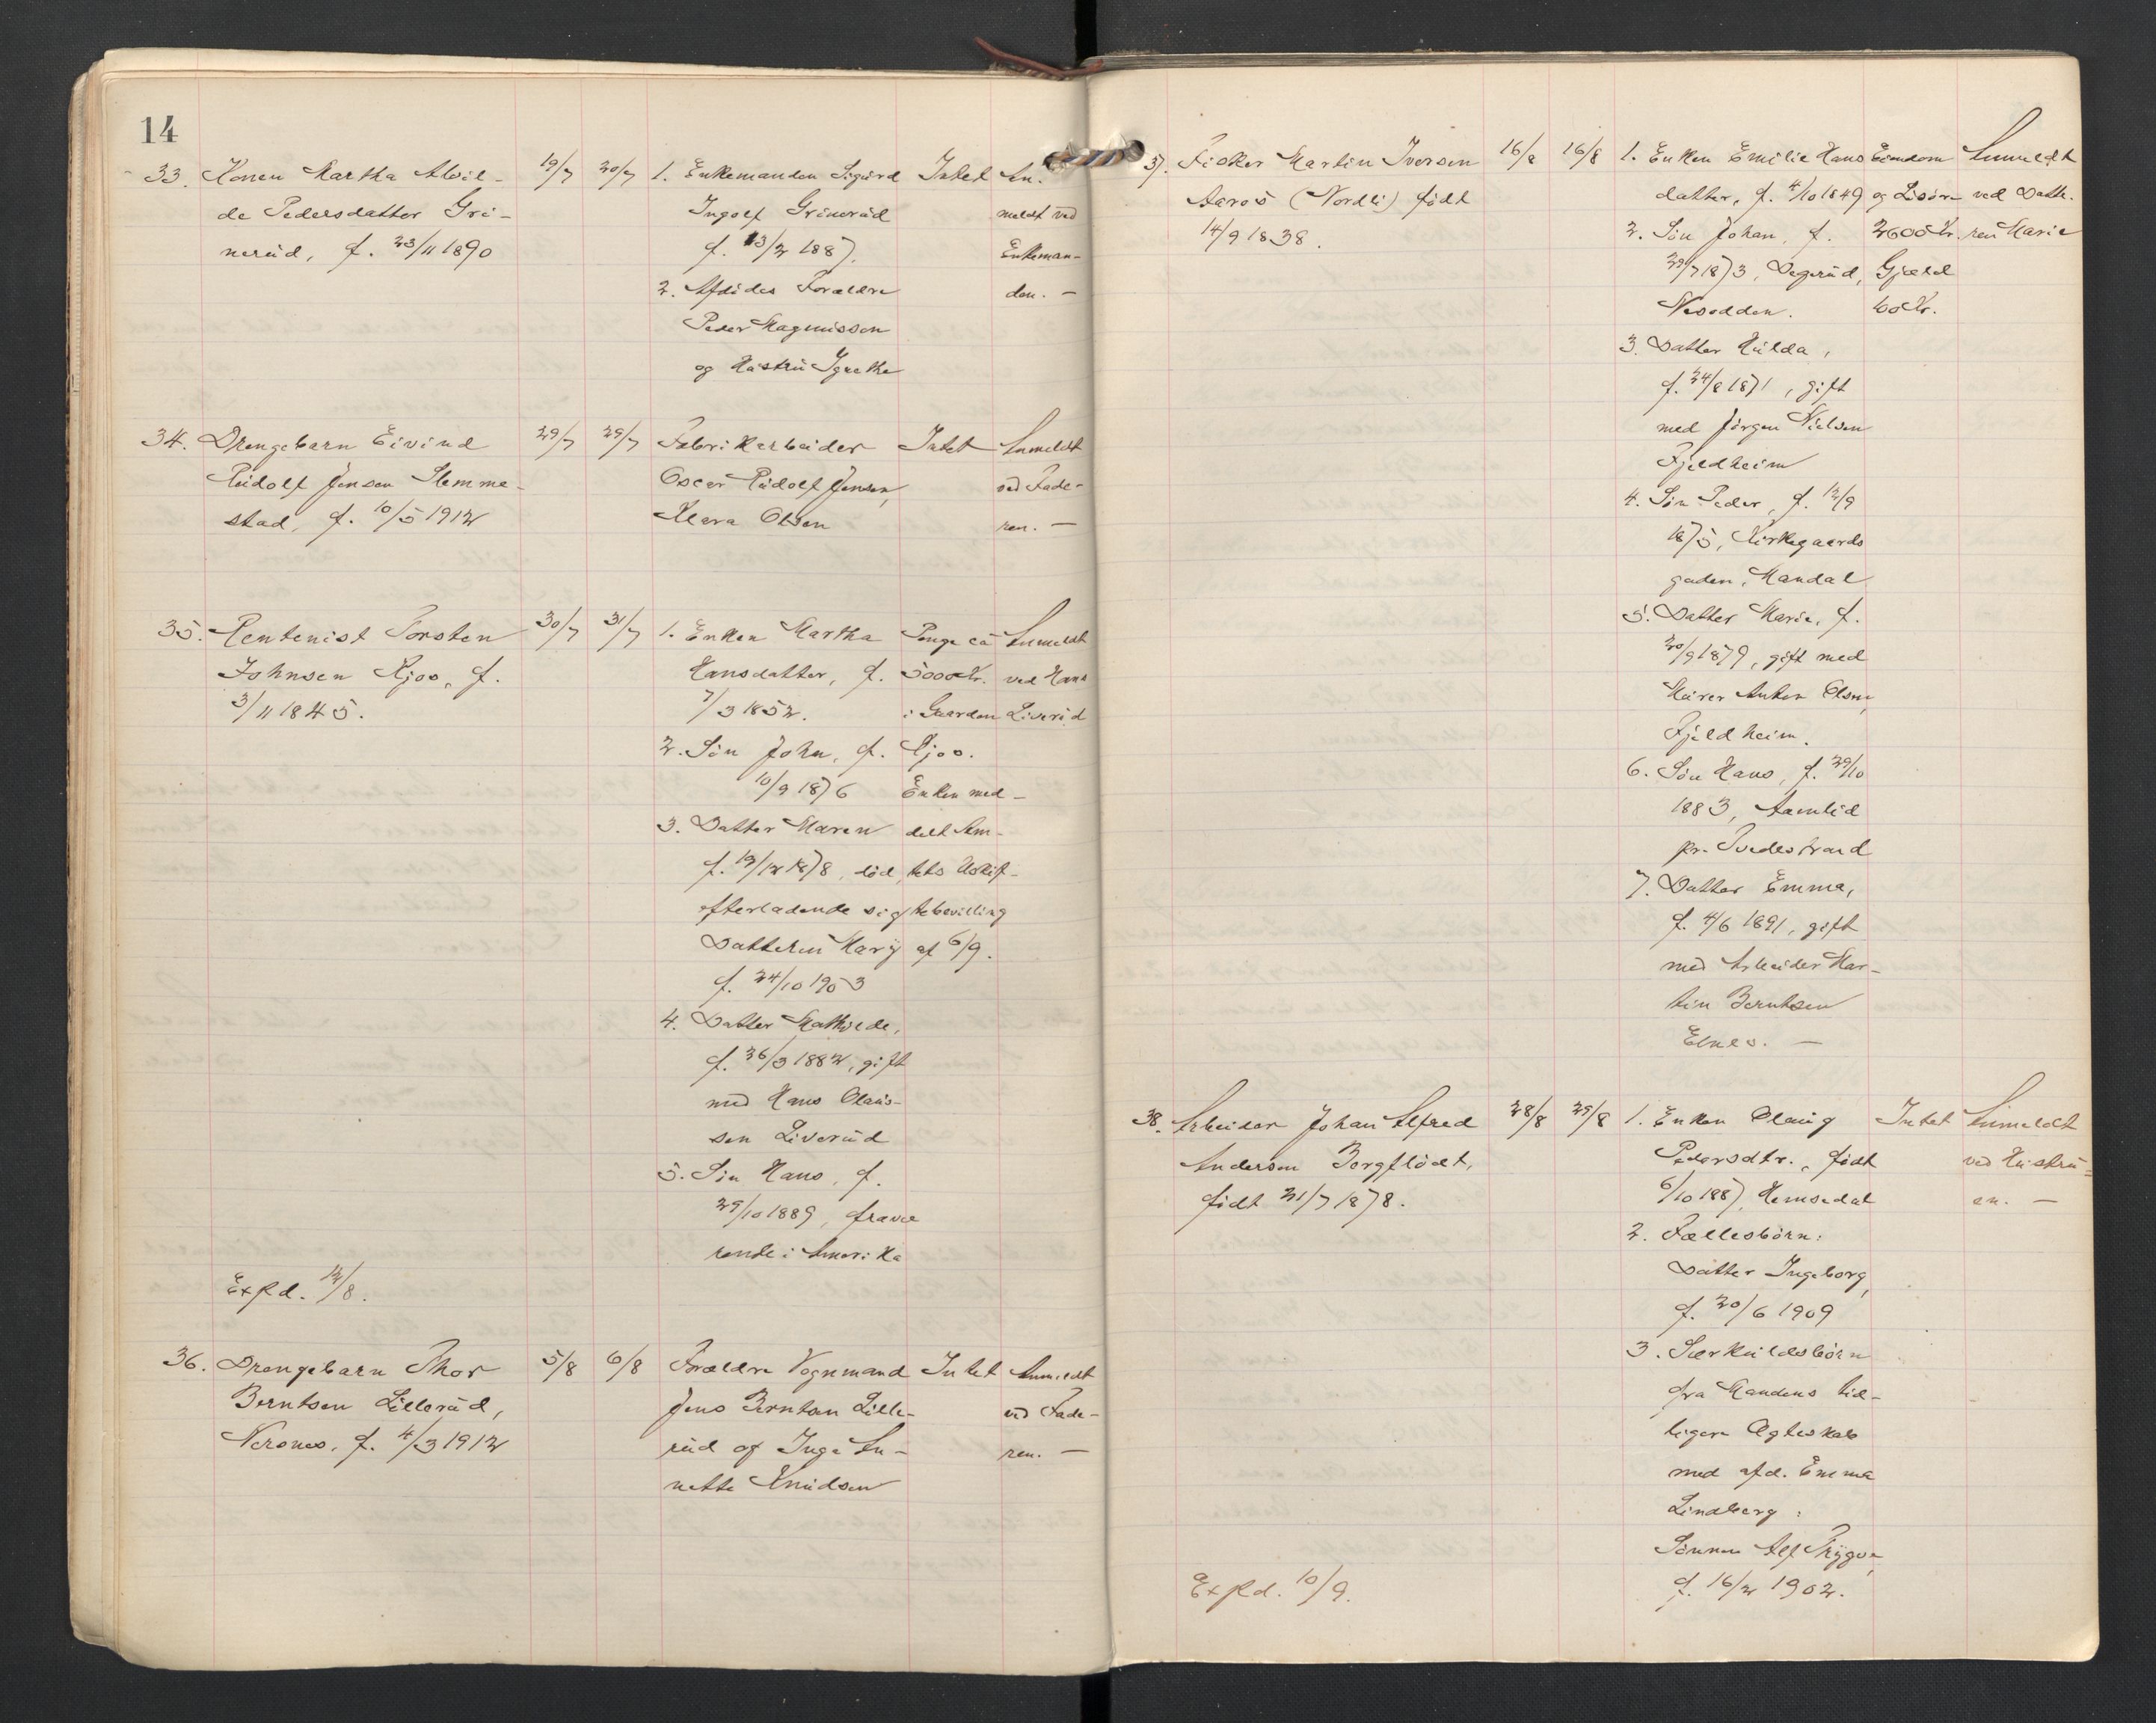 14
33. Konen Martha Alvil- 19/7 20/7 1. Enkemanden Sigurd Intet An-
de Pedersdatter Gri- Ingolf Grinerud meldt ved
nerud, f. 23/11 1890 f. 13/2 1887. Enkeman-
2. Afdødes Forældre den. —
Peder Magnussen
og Hustru Grethe
34. Drengebarn Eivind 29/7 29/7 Fabrikarbeider Intet Anmeldt
Rudolf Jensen Slemme- Oscar Rudolf Jensen, ved Fade-
stad, f. 10/5 1912 Klara Olsen ren. —
35. Rentenist Torsten 30/7 31/7 1. Enken Martha Penge ca Anmeldt
Johnsen Kjos, f. Hansdatter, f. 5000 Kr. ved Hans
3/11 1845. 7/3 1852. i Gaarden Liverud
2. Søn John, f. Kjos.
10/9 1876 Enken med-
3. Datter Maren delt Am-
f. 13/12 1878, død, tets Uskif-
efterladende sig tebevilling
Datteren Mary af 6/9.
f. 24/10 1903
4. Datter Mathilde,
f. 26/3 1882, gift
med Hans Olaus-
sen Liverud
5. Søn Hans, f.
29/10 1889, fravæ
rende i Amerika
Expd. 12/8.
36. Drengebarn Thor 5/8 6/8 Forældre Vognmand Intet Anmeldt
Berntsen Lillerud, Jens Berntsen Lille- ved Fade-
Nersnes, f. 4/3 1912 rud og Inga An- ren. —
nette Knudsen
37. Fisker Martin Iversen 16/8 16/8 1. Enken Emilie Hans Eiendom Anmeldt
Aaros (Nordli) født datter, f. 4/10 1849 og Løsøre ved Datte-
14/9 1838. 2. Søn Johan, f. 2600 Kr. ren Marie
29/7 1873, Degerud, Gjæld
Nesodden. 60 Kr.
3. Datter Hulda,
f. 24/8 1871, gift
med Jørgen Nielsen
Fjeldheim
4. Søn Peder, f. 12/9
1875, Kirkegaards
gaden, Mandal
5. Datter Marie, f.
20/9 1879, gift med
Murer Anton Olsen,
Fjeldheim.
6. Søn Hans, f. 29/10
1883, Aamlid
pr. Tvedestrand
7. Datter Emma,
f. 4/6 1891, gift
med Arbeider Mar-
tin Berntsen
Elnes. —
38. Arbeider Johan Alfred 28/8 29/8 1. Enken Olaug Intet Anmeldt
Andersen Borgflødt, Pedersdtr., født ved Hustru-
født 31/7 1878. 6/10 1887, Hemsedal en. —
2. Fællesbørn:
Datter Ingeborg,
f. 20/6 1909
3. Særkuldsbørn
fra Mandens tid-
ligere Ægteskab
med afd. Emma
Lindberg:
Sønnen Alf Trygve,
f. 16/2 1902.
Expd. 10/9.